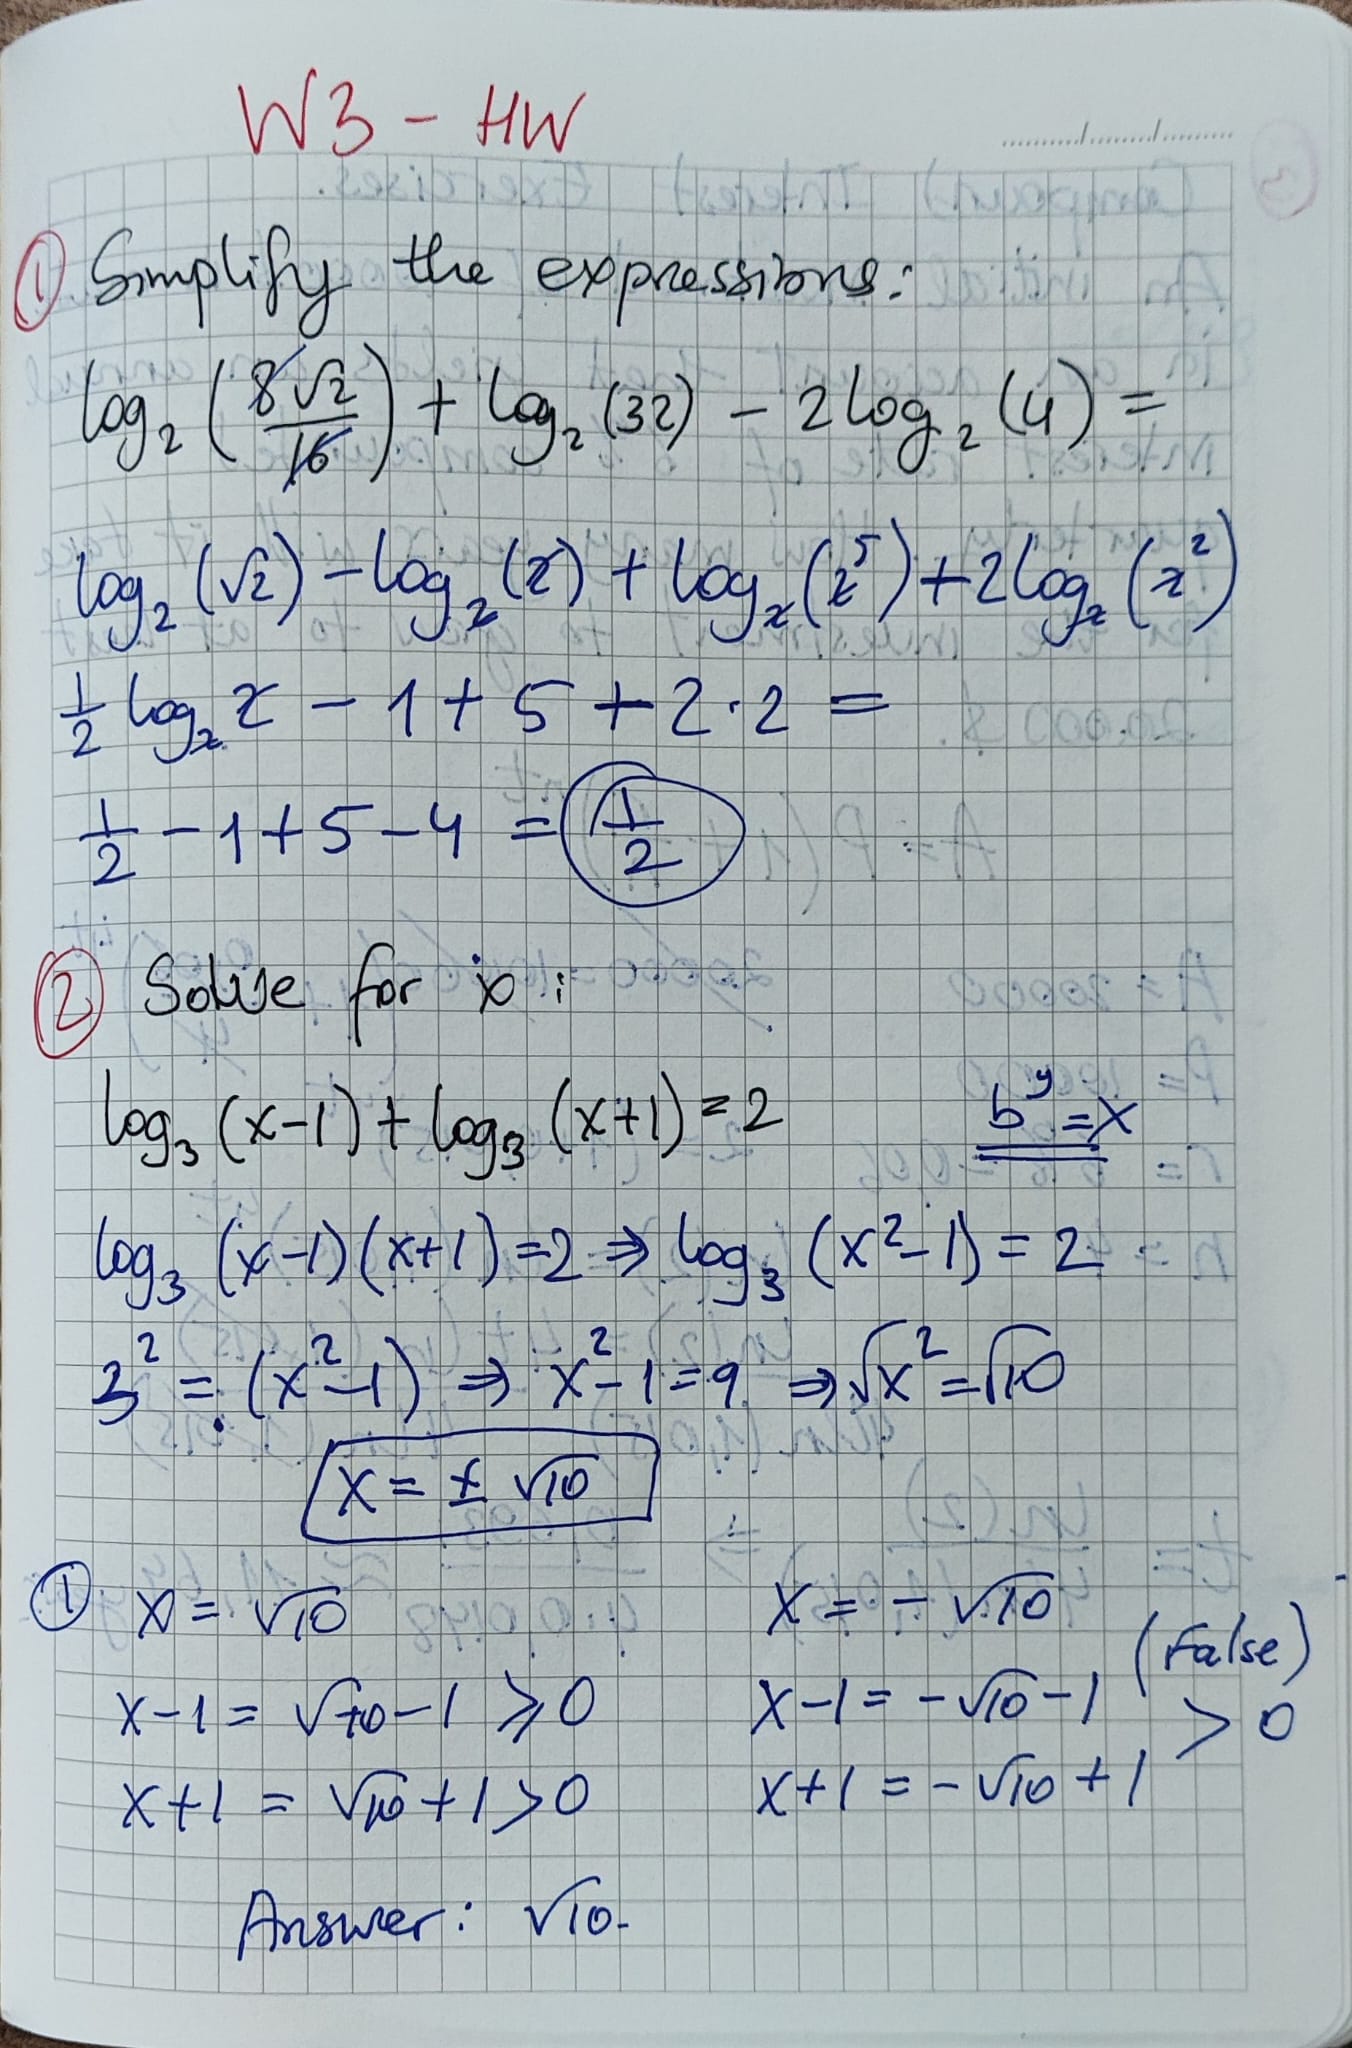 W3 - HW
① Simplify the expressions:
log₂ (8√2/16) + log₂ (32) - 2 log₂ (4) =
log₂ (√2) - log₂ (2) + log₂ (2⁵) + 2 log₂ (2²)
1/2 log₂ 2 - 1 + 5 + 2·2 =
1/2 - 1 + 5 - 4 = 1/2
② Solve for x:
log₃ (x-1) + log₃ (x+1) = 2 bʸ = x
log₃ (x-1)(x+1) = 2 ⇒ log₃ (x²-1) = 2
3² = (x²-1) ⇒ x²-1 = 9 ⇒ √x² = √10
x = ± √10
① x = √10 x = - √10
x-1 = √10-1 > 0 x-1 = -√10-1 (False)
x+1 = √10+1 > 0 x+1 = -√10+1 > 0
Answer: √10.